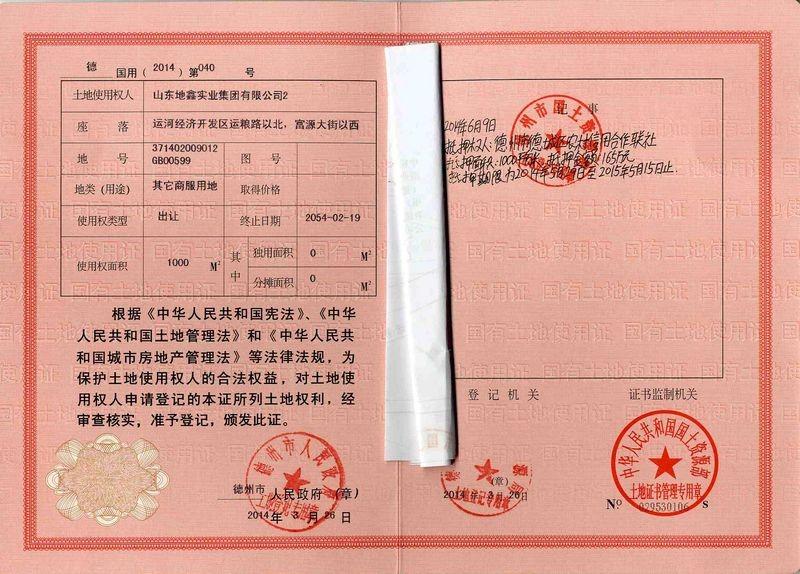 德 国用( 2014 )第 040 号
土地使用权人 山东地鑫实业集团有限公司2
座 落 运河经济开发区运粮路以北,富源大街以西
地 号 371402009012 GB00599 图 号
地类(用途) 其它商服用地 取得价格
使用权类型 出让 终止日期 2054-02-19
使用权面积 1000 M² 其中 独用面积 0 M²
分摊面积 0 M²
根据《中华人民共和国宪法》、《中华
人民共和国土地管理法》和《中华人民共
和国城市房地产管理法》等法律法规,为
保护土地使用权人的合法权益,对土地使
用权人申请登记的本证所列土地权利,经
审查核实,准予登记,颁发此证。
德州市 人民政府(章)
2014 年 3 月 26 日
德州市人民政府
记 事
德州市国土资
2014年6月9日
抵押权人:德州市德城区农村信用合作联社
抵押面积:1000平方米 抵押金额:165万元
抵押期限为2014年5月29日至2015年5月15日止.
登记机关
(章)
2014 年 3 月 26 日
证书监制机关
中华人民共和国国土资源部
土地证书管理专用章
Nº 029530106 s
国有土地使用证